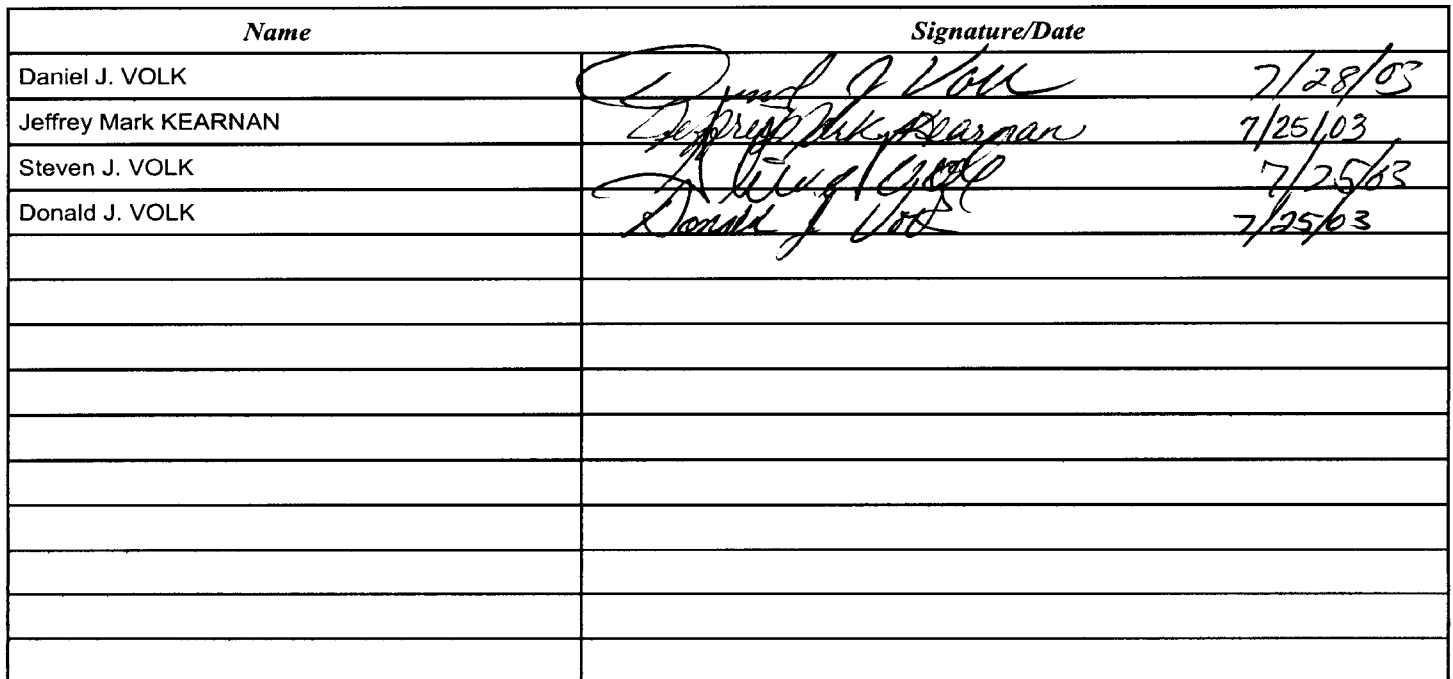 Name Signature/Date
Daniel J. VOLK Daniel J Volk 7/28/03
Jeffrey Mark KEARNAN Jeffrey Mark Kearnan 7/25/03
Steven J. VOLK Steven J Volk 7/25/03
Donald J. VOLK Donald J Volk 7/25/03